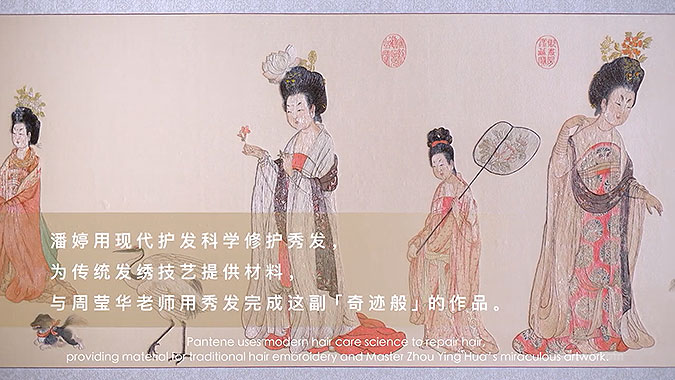 潘婷用现代护发科学修护秀发，
为传统发绣技艺提供材料，
与周莹华老师用秀发完成这副「奇迹般」的作品。
Pantene uses modern hair care science to repair hair,
providing material for traditional hair embroidery and Master Zhou Ying Hua's miraculous artwork.